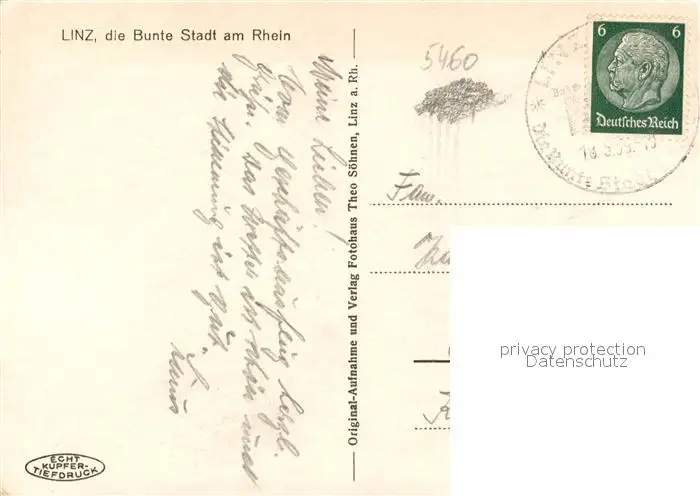 LINZ, die Bunte Stadt am Rhein
Meine Lieben!
Vom Geschäftsausflug herzl.
Grüße. Das Wetter ist schön und
die Stimmung ist gut.
Original-Aufnahme und Verlag Fotohaus Theo Söhnen, Linz a. Rh.
5460
6 6
Deutsches Reich
LINZ
Die Bunte Stadt
Fam.
privacy protection
Datenschutz
ECHT
KUPFER-
TIEFDRUCK